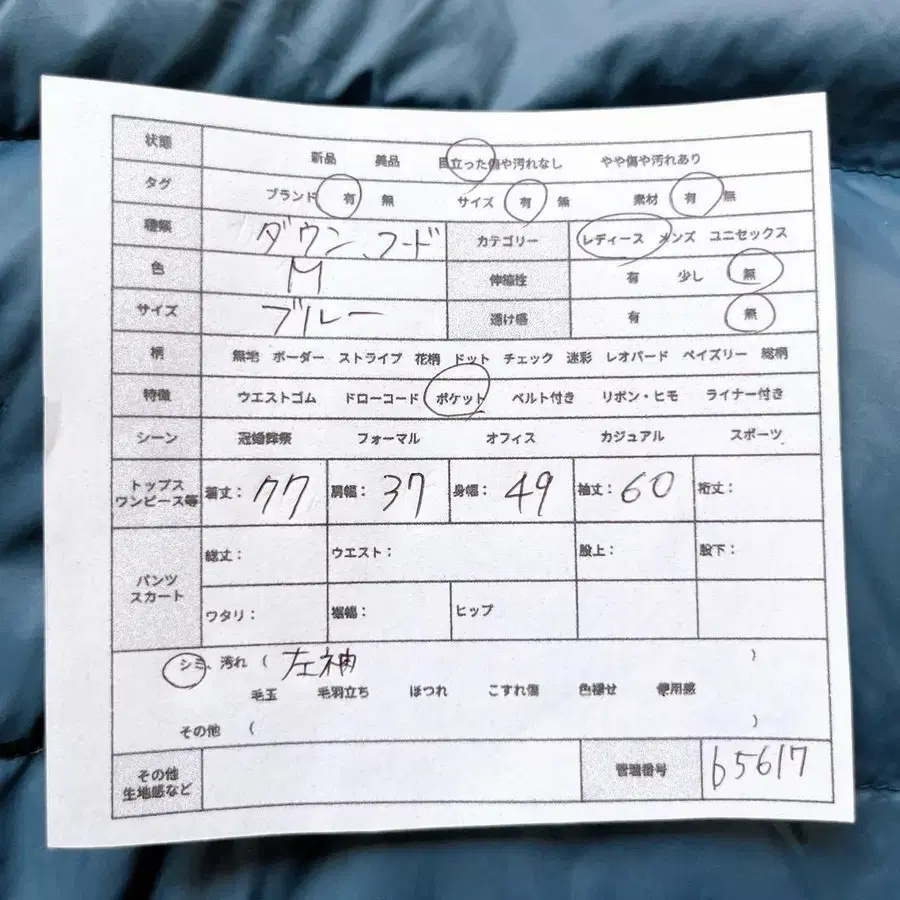 状態 新品 美品 目立った傷や汚れなし やや傷や汚れあり
タグ ブランド 有 無 サイズ 有 無 素材 有 無
種類 ダウン、フード カテゴリー レディース メンズ ユニセックス
色 M 伸縮性 有 少し 無
サイズ ブルー 透け感 有 無
柄 無地 ボーダー ストライプ 花柄 ドット チェック 迷彩 レオパード ペイズリー 総柄
特徴 ウエストゴム ドローコード ポケット ベルト付き リボン・ヒモ ライナー付き
シーン 冠婚葬祭 フォーマル オフィス カジュアル スポーツ
トップス
ワンピース等 着丈: 77 肩幅: 37 身幅: 49 袖丈: 60 裄丈:
パンツ
スカート 総丈: ウエスト: 股上: 股下:
ワタリ: 裾幅: ヒップ
シミ、汚れ ( 左袖 )
毛玉 毛羽立ち ほつれ こすれ傷 色褪せ 使用感
その他 ( )
その他
生地感など 管理番号 b5617